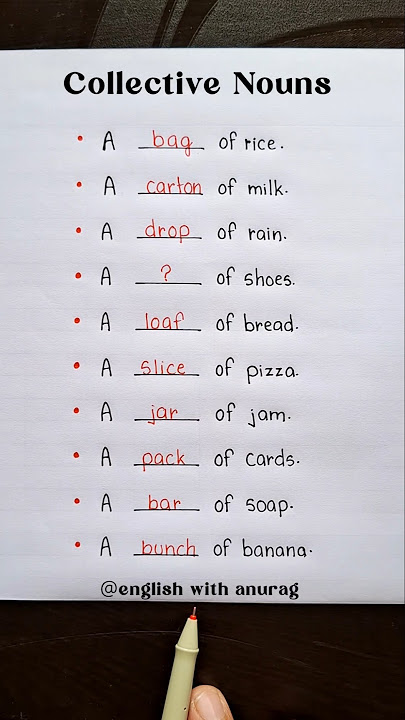 Collective Nouns
• A bag of rice.
• A carton of milk.
• A drop of rain.
• A ? of shoes.
• A loaf of bread.
• A slice of pizza.
• A jar of jam.
• A pack of cards.
• A bar of soap.
• A bunch of banana.
@english with anurag